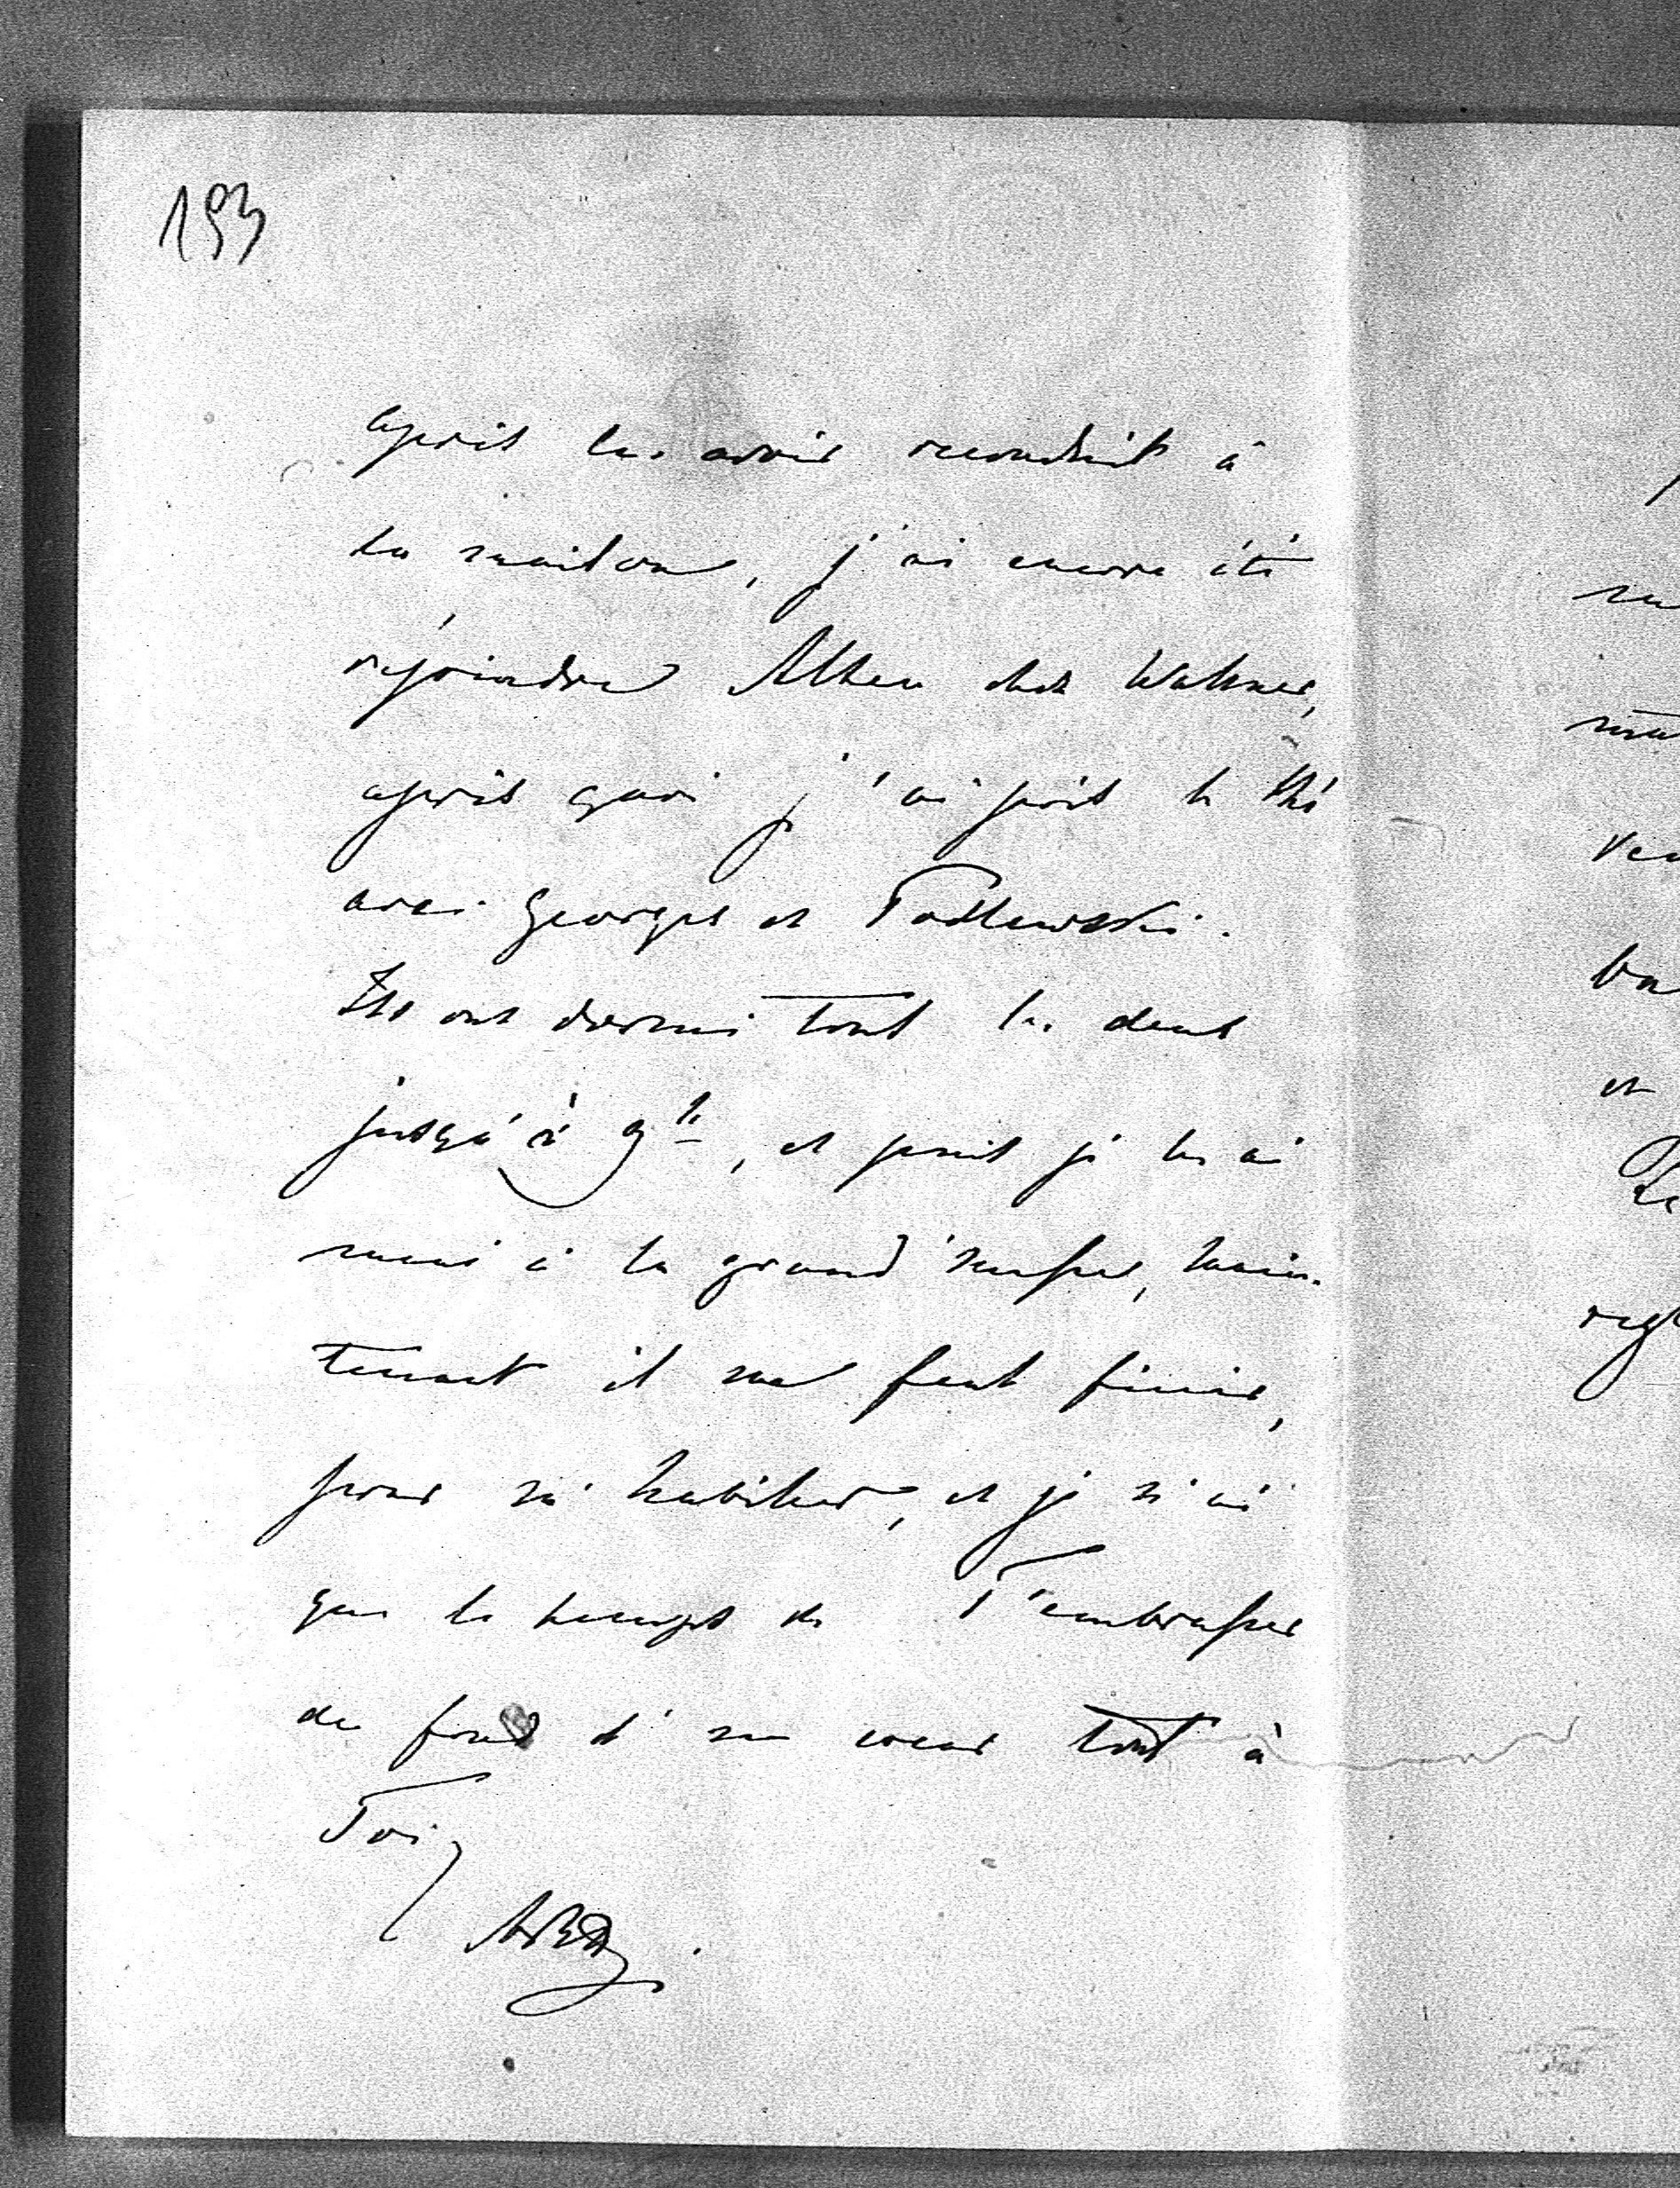 193
après les avoir reconduit à
la maison, j'ai encore été
rejoindre chez
après quoi j'ai pris le thé
avec Georges et Podlewski.
Ils ont dormi tout les deux
jusqu'à 9h, et puis je les ai
mené à la grand'messe, main-
tenant il me faut finir,
pour m'habiller, et je n'ai
que le temps de T'embrasser
du fond d' mon coeur tout à
Toi